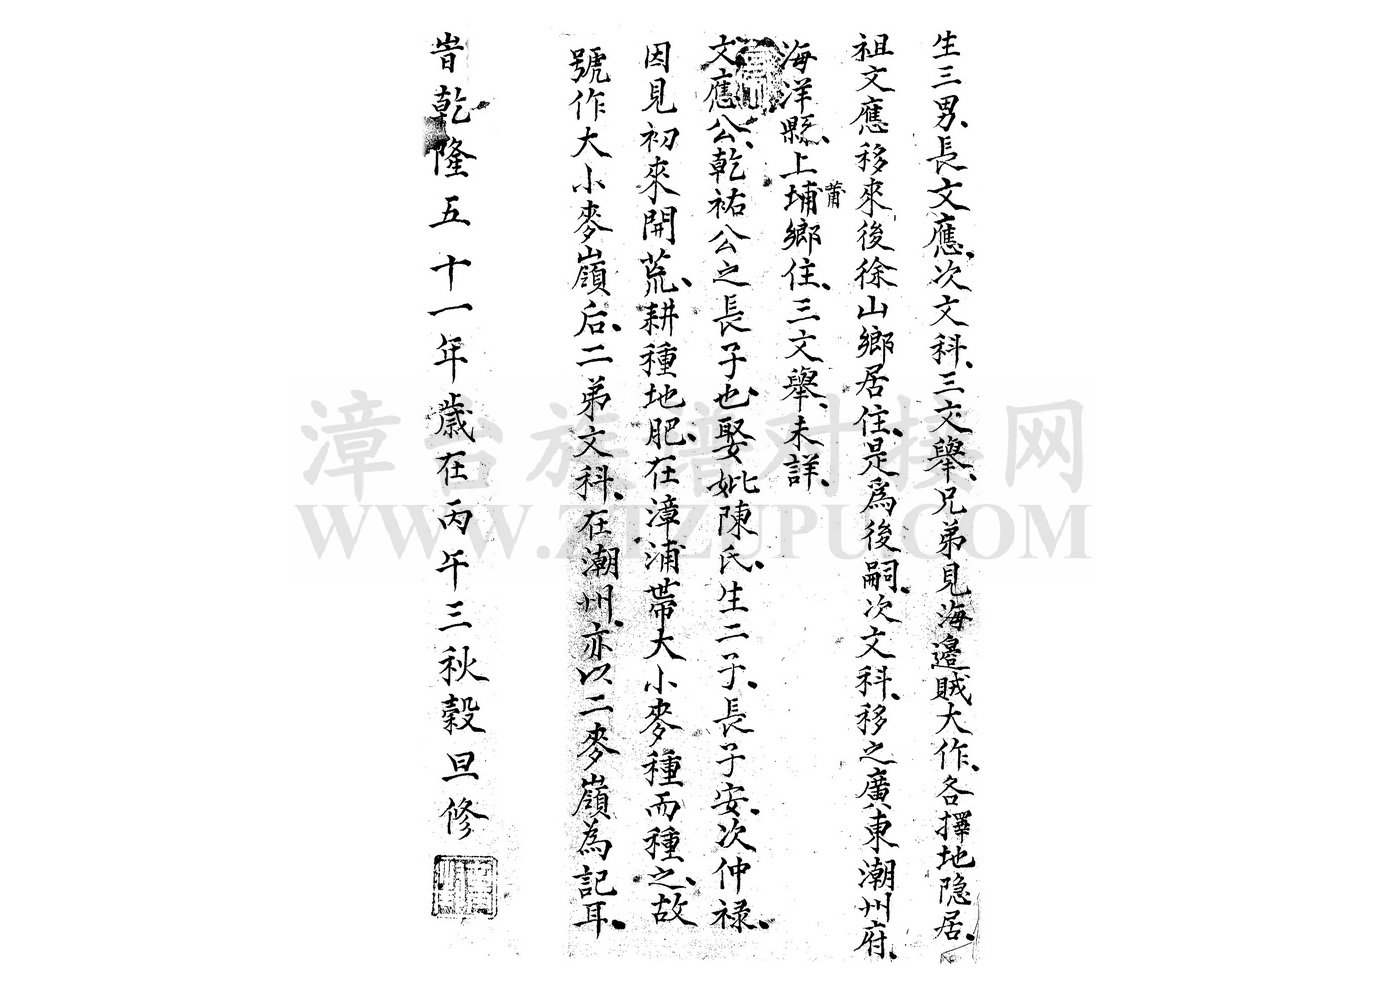 生三男、長文應、次文科、三文舉、兄弟見海邊賊大作、各擇地隐居、
祖文應移來後徐山鄉居住、是爲後嗣、次文科、移之廣東潮州府、
海洋縣、上埔鄉住、三文舉、未詳、
莆
文應公、乾祐公之長子也、娶妣陳氏、生二子、長子安、次仲祿、
因見初來開荒、耕種地肥、在漳浦帶大小麥種而種之、故
號作大小麥嶺后、二弟文科、在潮州、亦以二麥嶺為記耳、
旹乾隆五十一年歲在丙午三秋穀旦修
漳台族譜对接网
WWW.ZTZUPU.COM